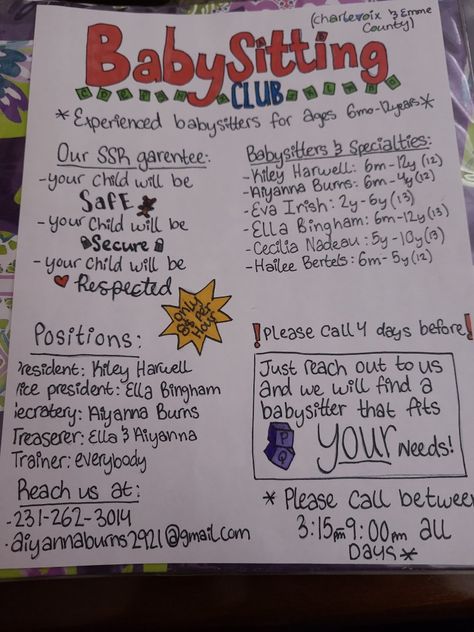 (Charlevoix & Emme County)
BabySitting
CLUB
*Experienced babysitters for ages 6mo-12years*
Our SSR garentee:
-your child will be
SAFE
-your child will be
Secure
-your child will be
Respected
Babysitters & Specialties:
-Kiley Harwell: 6m-12y (12)
-Aiyanna Burns: 6m-4y (12)
-Eva Irish: 2y-6y (13)
-Ella Bingham: 6m-12y (13)
-Cecilia Nadeau: 5y-10y (13)
-Hailee Bertels: 6m-5y (12)
Only
Per
Hour
Positions:
resident: Kiley Harwell
ice president: Ella Bingham
ecratery: Aiyanna Burns
Treaserer: Ella & Aiyanna
Trainer: everybody
Reach us at:
-231-262-3014
-aiyannaburns2921@gmail.com
!Please call 4 days before!
Just reach out to us
and we will find a
babysitter that fits
YOUR needs!
P
Q
*Please call between
3:15pm-9:00pm all
Days*